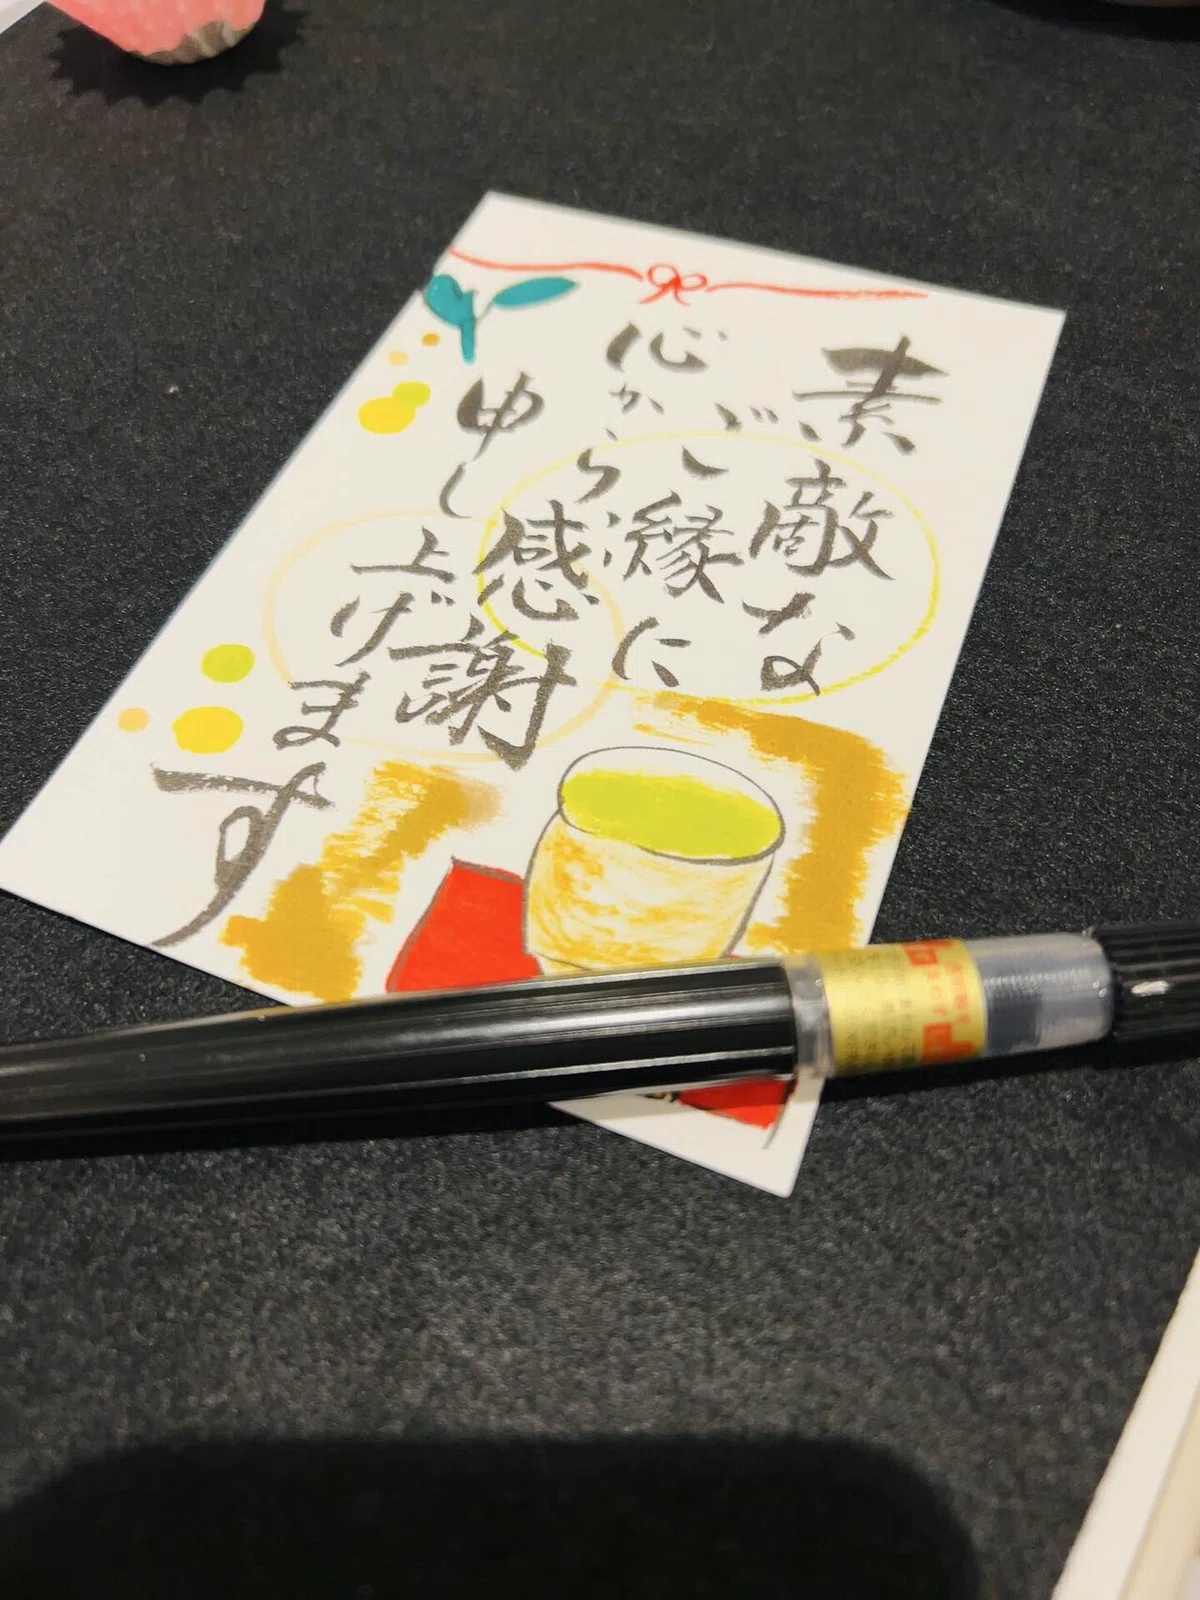 素敵な
ご縁に
心から感謝
申し上げます